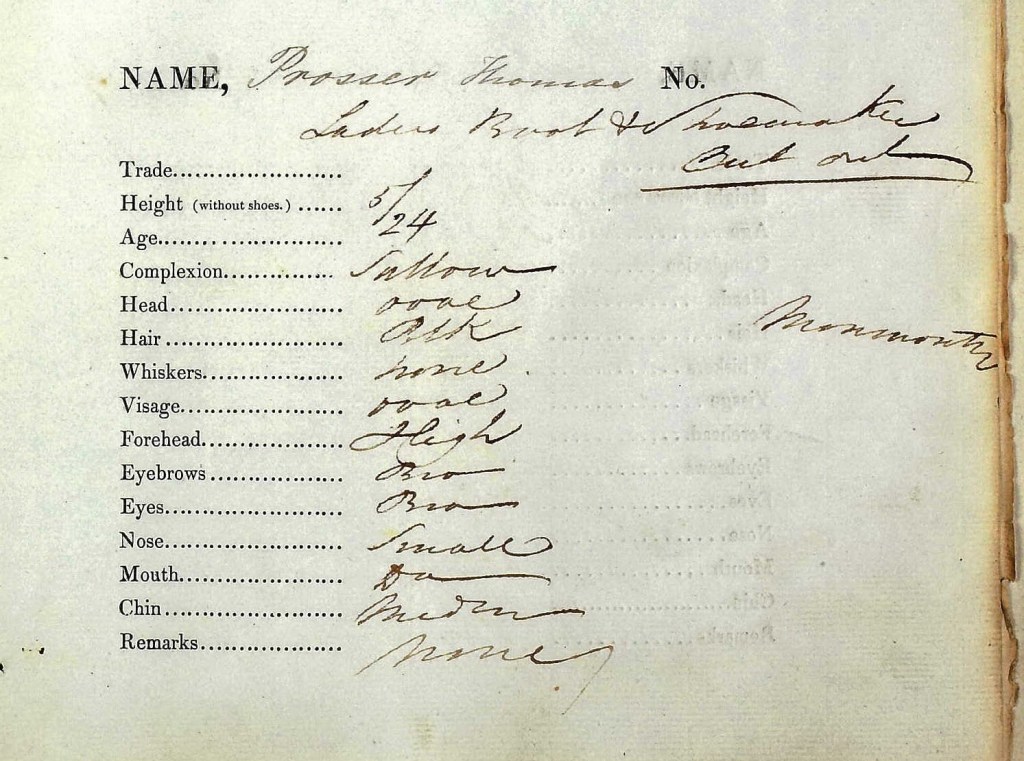 NAME, Prosser Thomas No.
Ladies Boot & Shoemaker
Cut out
Trade........................
Height (without shoes.) ...... 5/
Age........................ 24
Complexion............... Sallow
Head........................ oval
Hair........................ Blk
Whiskers................... none
Visage...................... oval
Monmouth
Forehead................... High
Eyebrows................... Bro
Eyes........................ Bro
Nose........................ Small
Mouth...................... Do
Chin........................ Medm
Remarks................... None